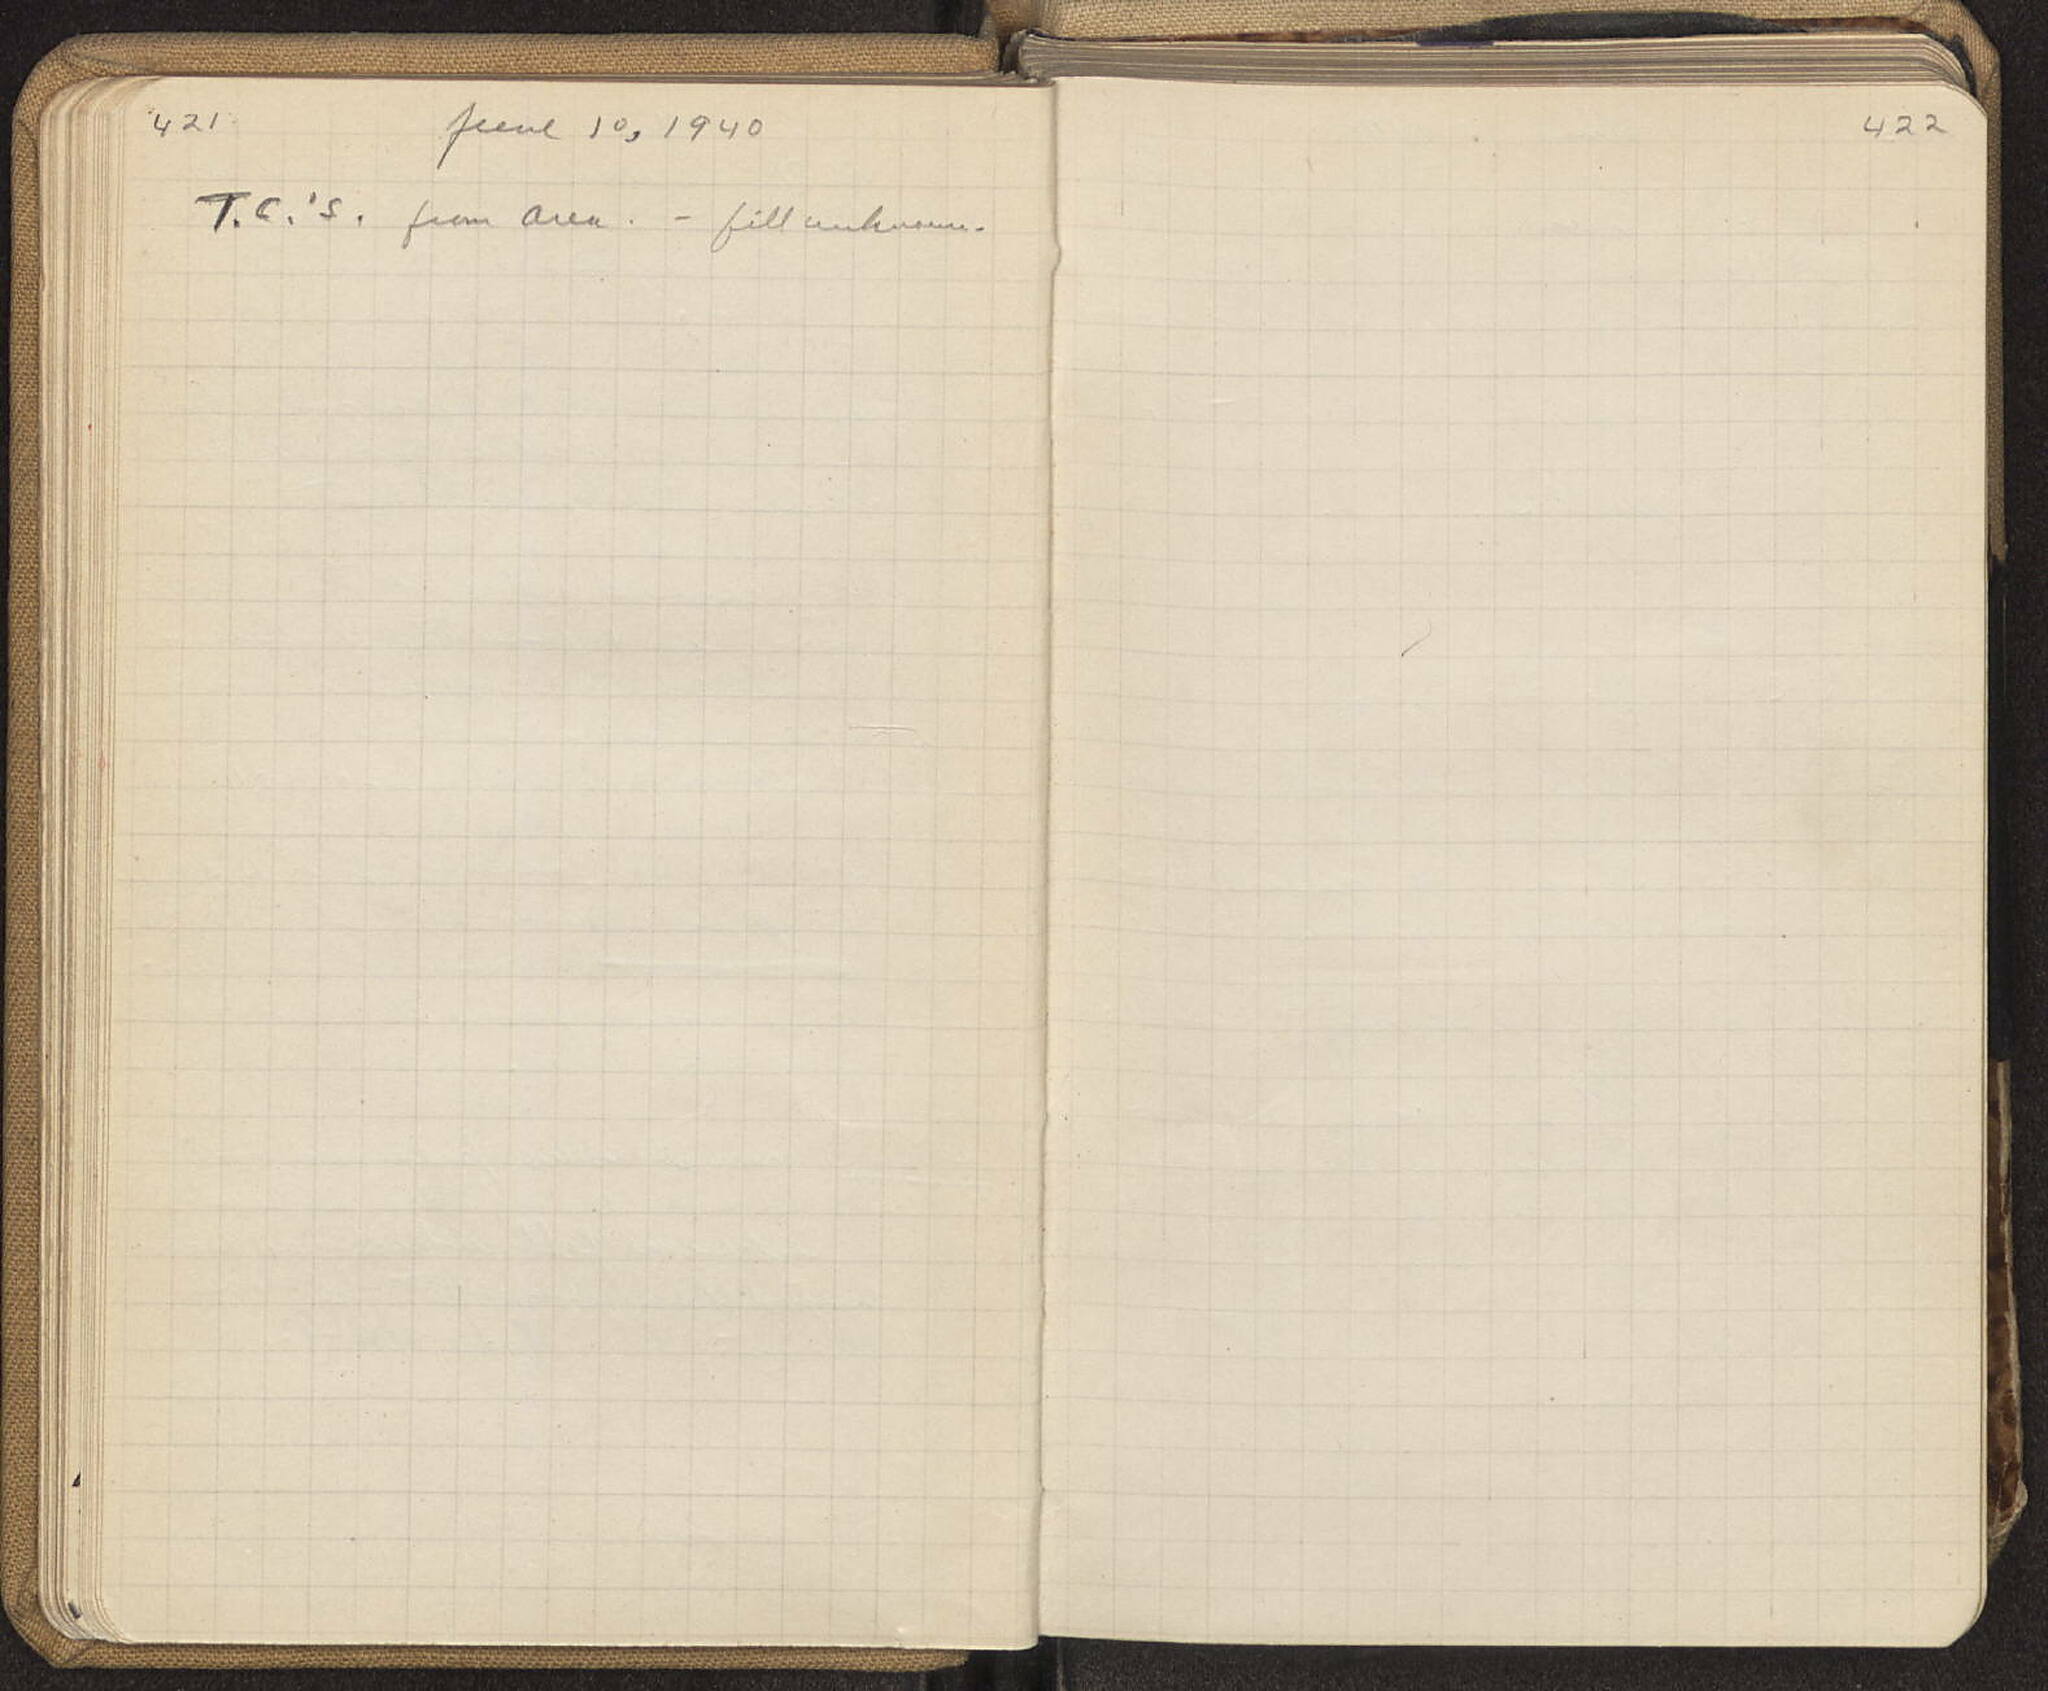 421
June 10, 1940
T.C.'s. from area. - fill unknown.
422